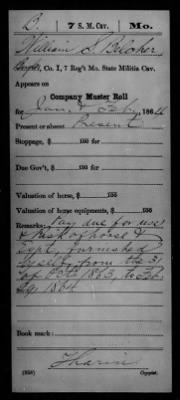 B. 7 S. M. Cav. Mo.
William S Belcher
Co. I, 7 Reg't Mo. State Militia Cav.
Appears on
Company Muster Roll
for Jan & Feb, 1864
Present or absent Present
Stoppage, $ 100 for
Due Gov't, $ 100 for
Valuation of horse, $ 100
Valuation of horse equipments, $ 100
Remarks: Pay due for use
& Risk of horse &
Eqpt. furnished
himself from the 31
of Oct 1863, to Feb
29 1864
Book mark:
(358) Copyist.